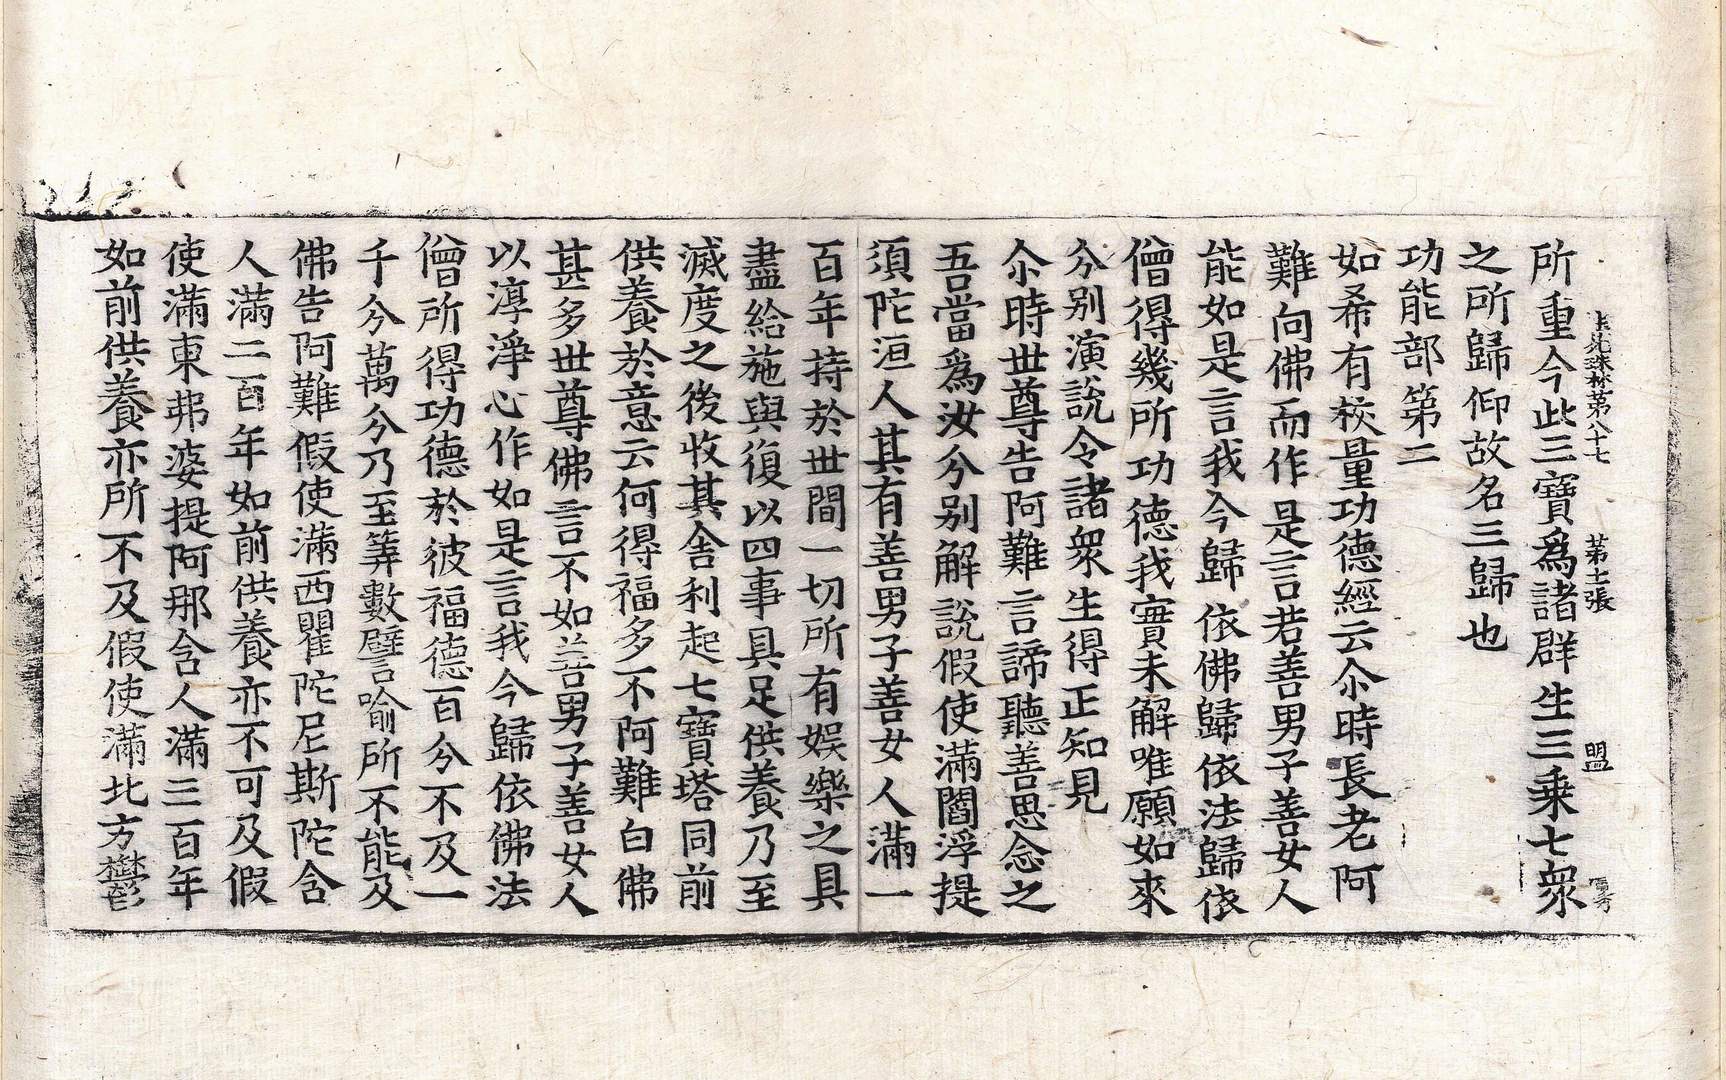 法苑珠林第八十七 第十張 盟
所重今此三寶爲諸群生三乗七衆
之所歸仰故名三歸也
功能部第二
如希有挍量功德經云尒時長老阿
難向佛而作是言若善男子善女人
能如是言我今歸依佛歸依法歸依
僧得幾所功德我實未解唯願如來
分别演說令諸衆生得正知見
尒時世尊告阿難言諦聽善思念之
吾當爲汝分别解說假使滿閻浮提
須陀洹人其有善男子善女人滿一
百年持於世間一切所有娛樂之具
盡給施與復以四事具足供養乃至
滅度之後收其舎利起七寶塔同前
供養於意云何得福多不阿難白佛
甚多世尊佛言不如善男子善女人
以淳淨心作如是言我今歸依佛法
僧所得功德於彼福德百分不及一
千分萬分乃至筭數譬喻所不能及
佛告阿難假使滿西瞿陀尼斯陀含
人滿二百年如前供養亦不可及假
使滿東弗婆提阿那含人滿三百年
如前供養亦所不及假使滿北方欝